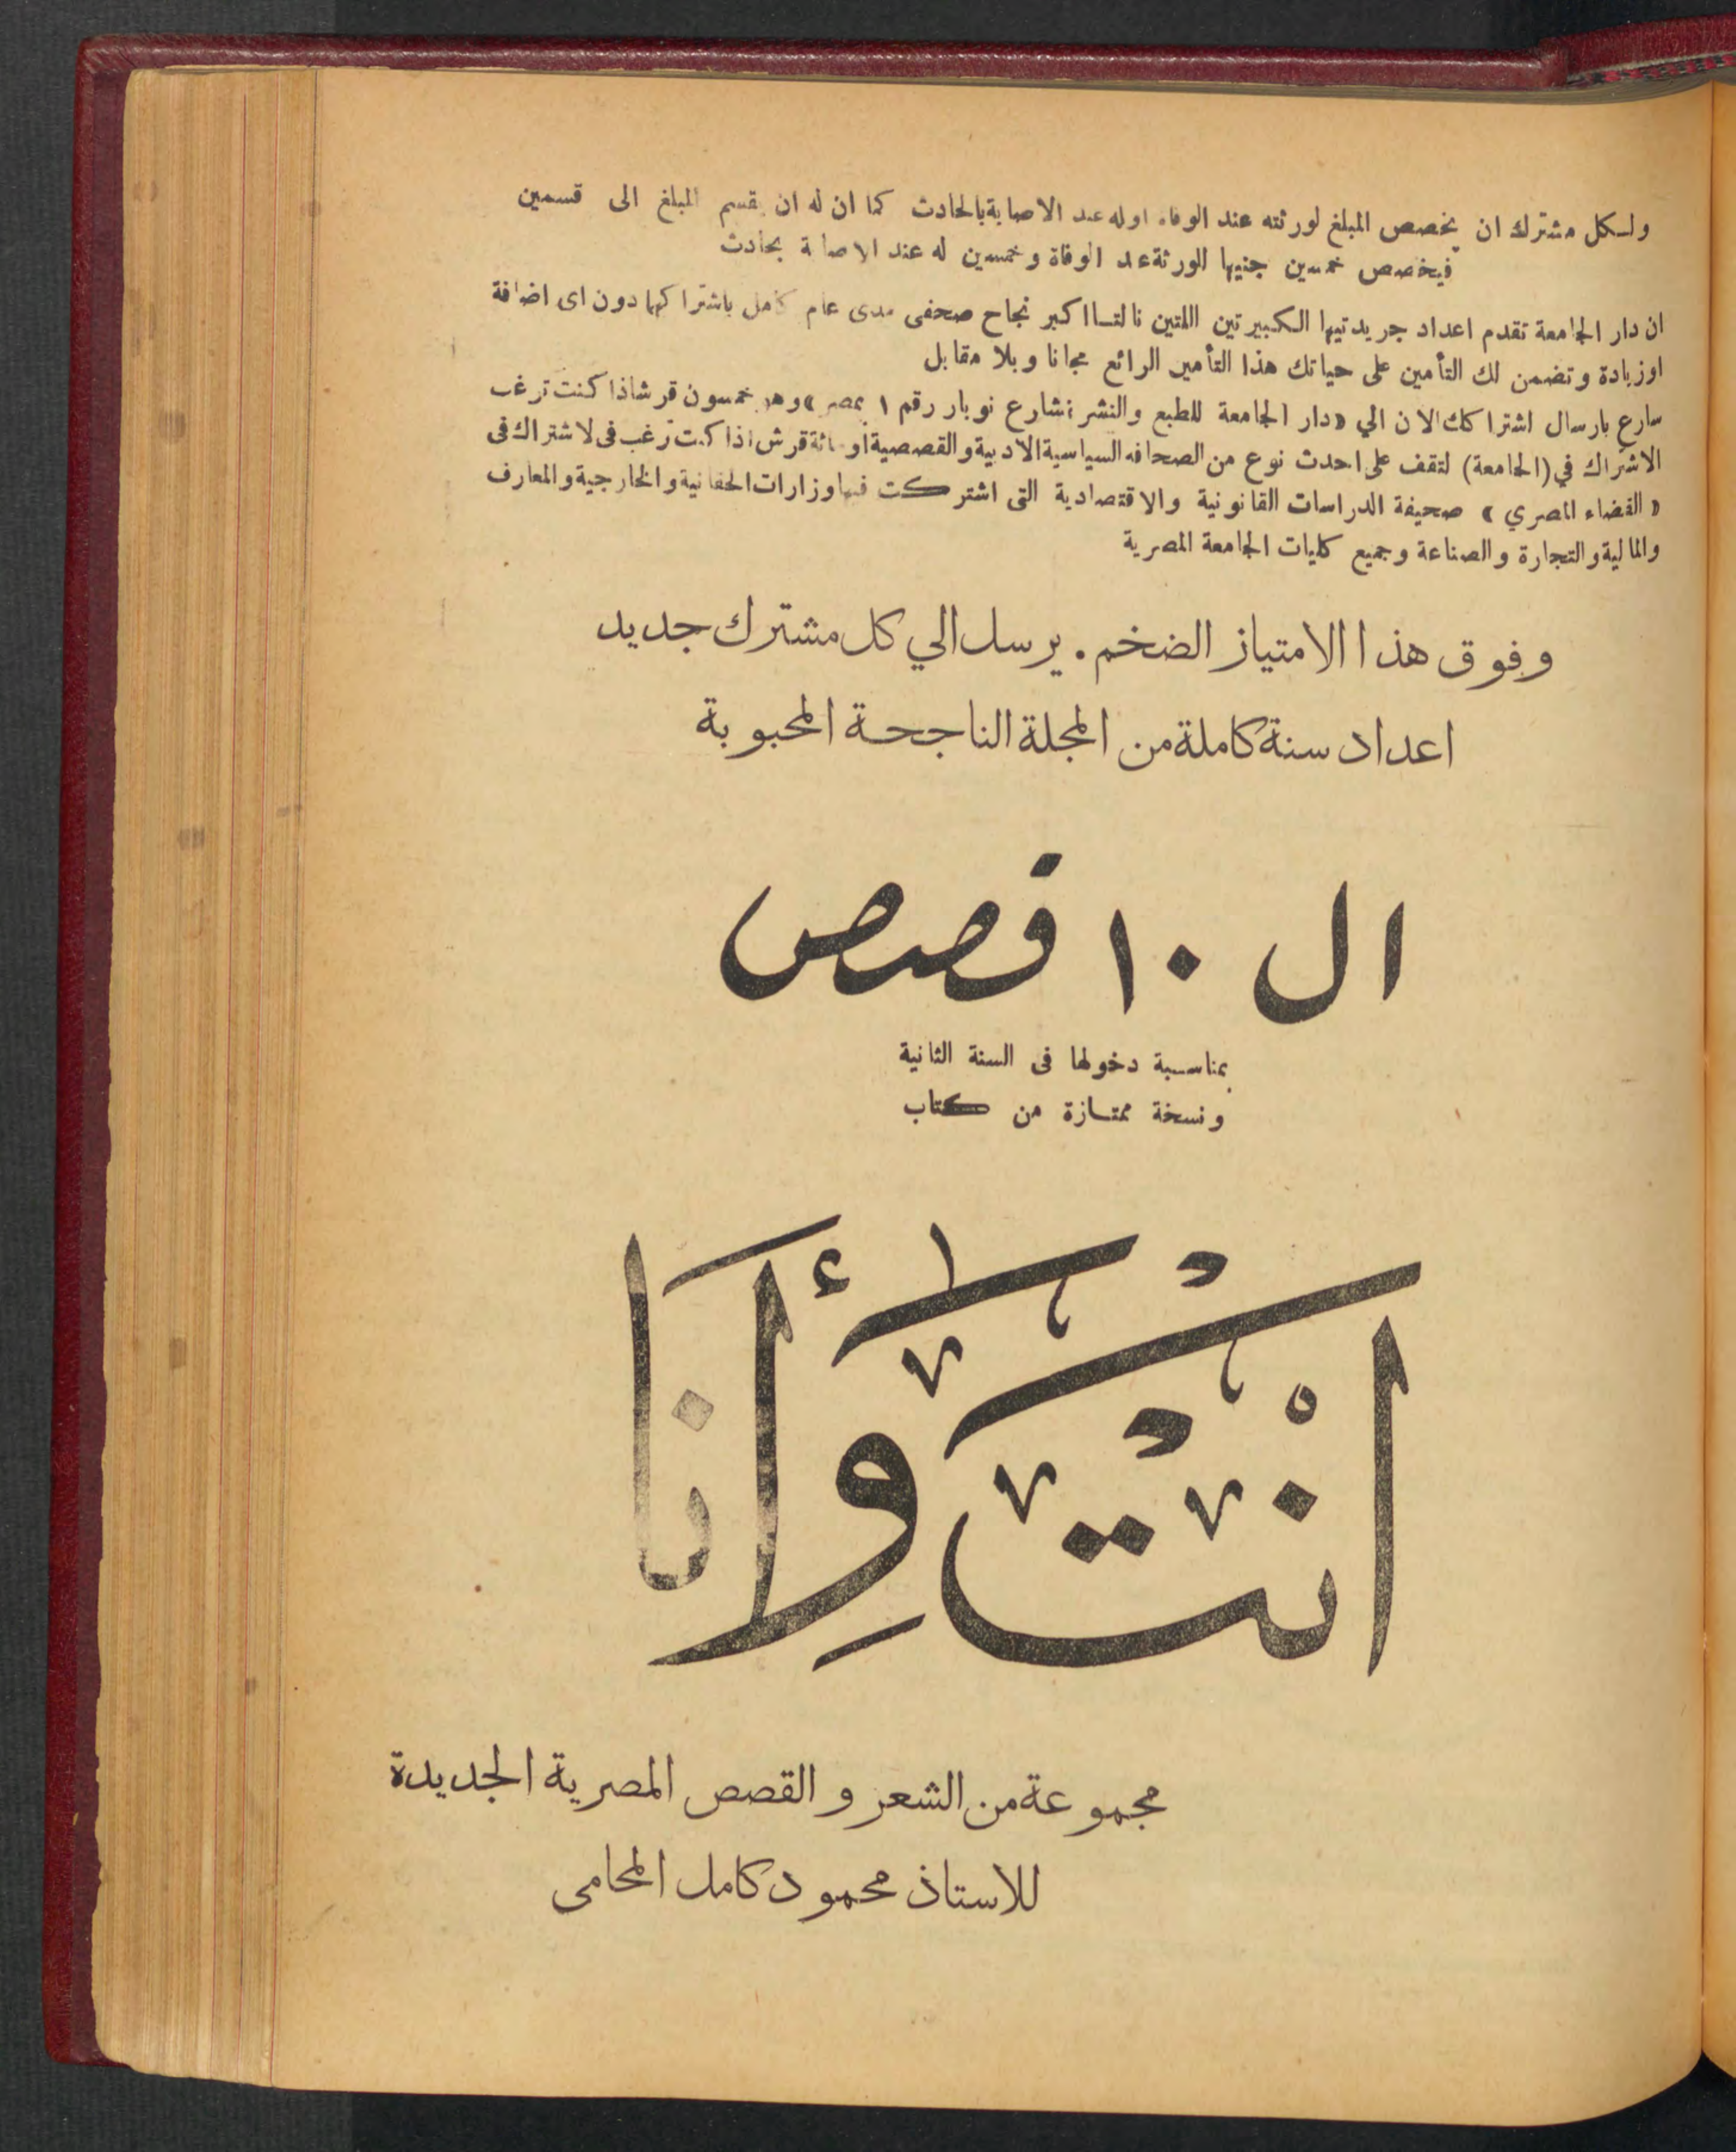 ولكل مشترك ان يخصص المبلغ لورثته عند الوفاه او له عند الاصابة بالحادث كما ان له ان يقسم المبلغ الى قسمين
فيخصص خمسين جنيها للورثة عند الوفاة وخمسين له عند الاصابة بحادث
ان دار الجامعة تقدم اعداد جريدتيها الكبيرتين اللتين نالتا اكبر نجاح صحفى مدى عام كامل باشتراكهما دون اى اضافة
او زيادة وتضمن لك التأمين على حياتك هذا التأمين الرائع مجانا وبلا مقابل
سارع بارسال اشتراكك الان الي «دار الجامعة للطبع والنشر بشارع نوبار رقم ١ بمصر» وهو خمسون قرشا اذا كنت ترغب
الاشتراك في (الجامعة) لتقف على احدث نوع من الصحافه السياسية الادبية والقصصية او مائة قرش اذا كنت ترغب فى لاشتراك فى
« القضاء المصري » صحيفة الدراسات القانونية والاقتصادية التى اشتركت فيها وزارات الحقانية والخارجية والمعارف
والمالية والتجارة والصناعة وجميع كليات الجامعة المصرية
وفوق هذا الامتياز الضخم . يرسل الي كل مشترك جديد
اعداد سنة كاملة من المجلة الناجحة المحبوبة
ال ١٠ قصص
بمناسبة دخولها فى السنة الثانية
ونسخة ممتازة من كتاب
انْت وَأنا
مجموعة من الشعر والقصص المصرية الجديدة
للاستاذ محمود كامل المحامى